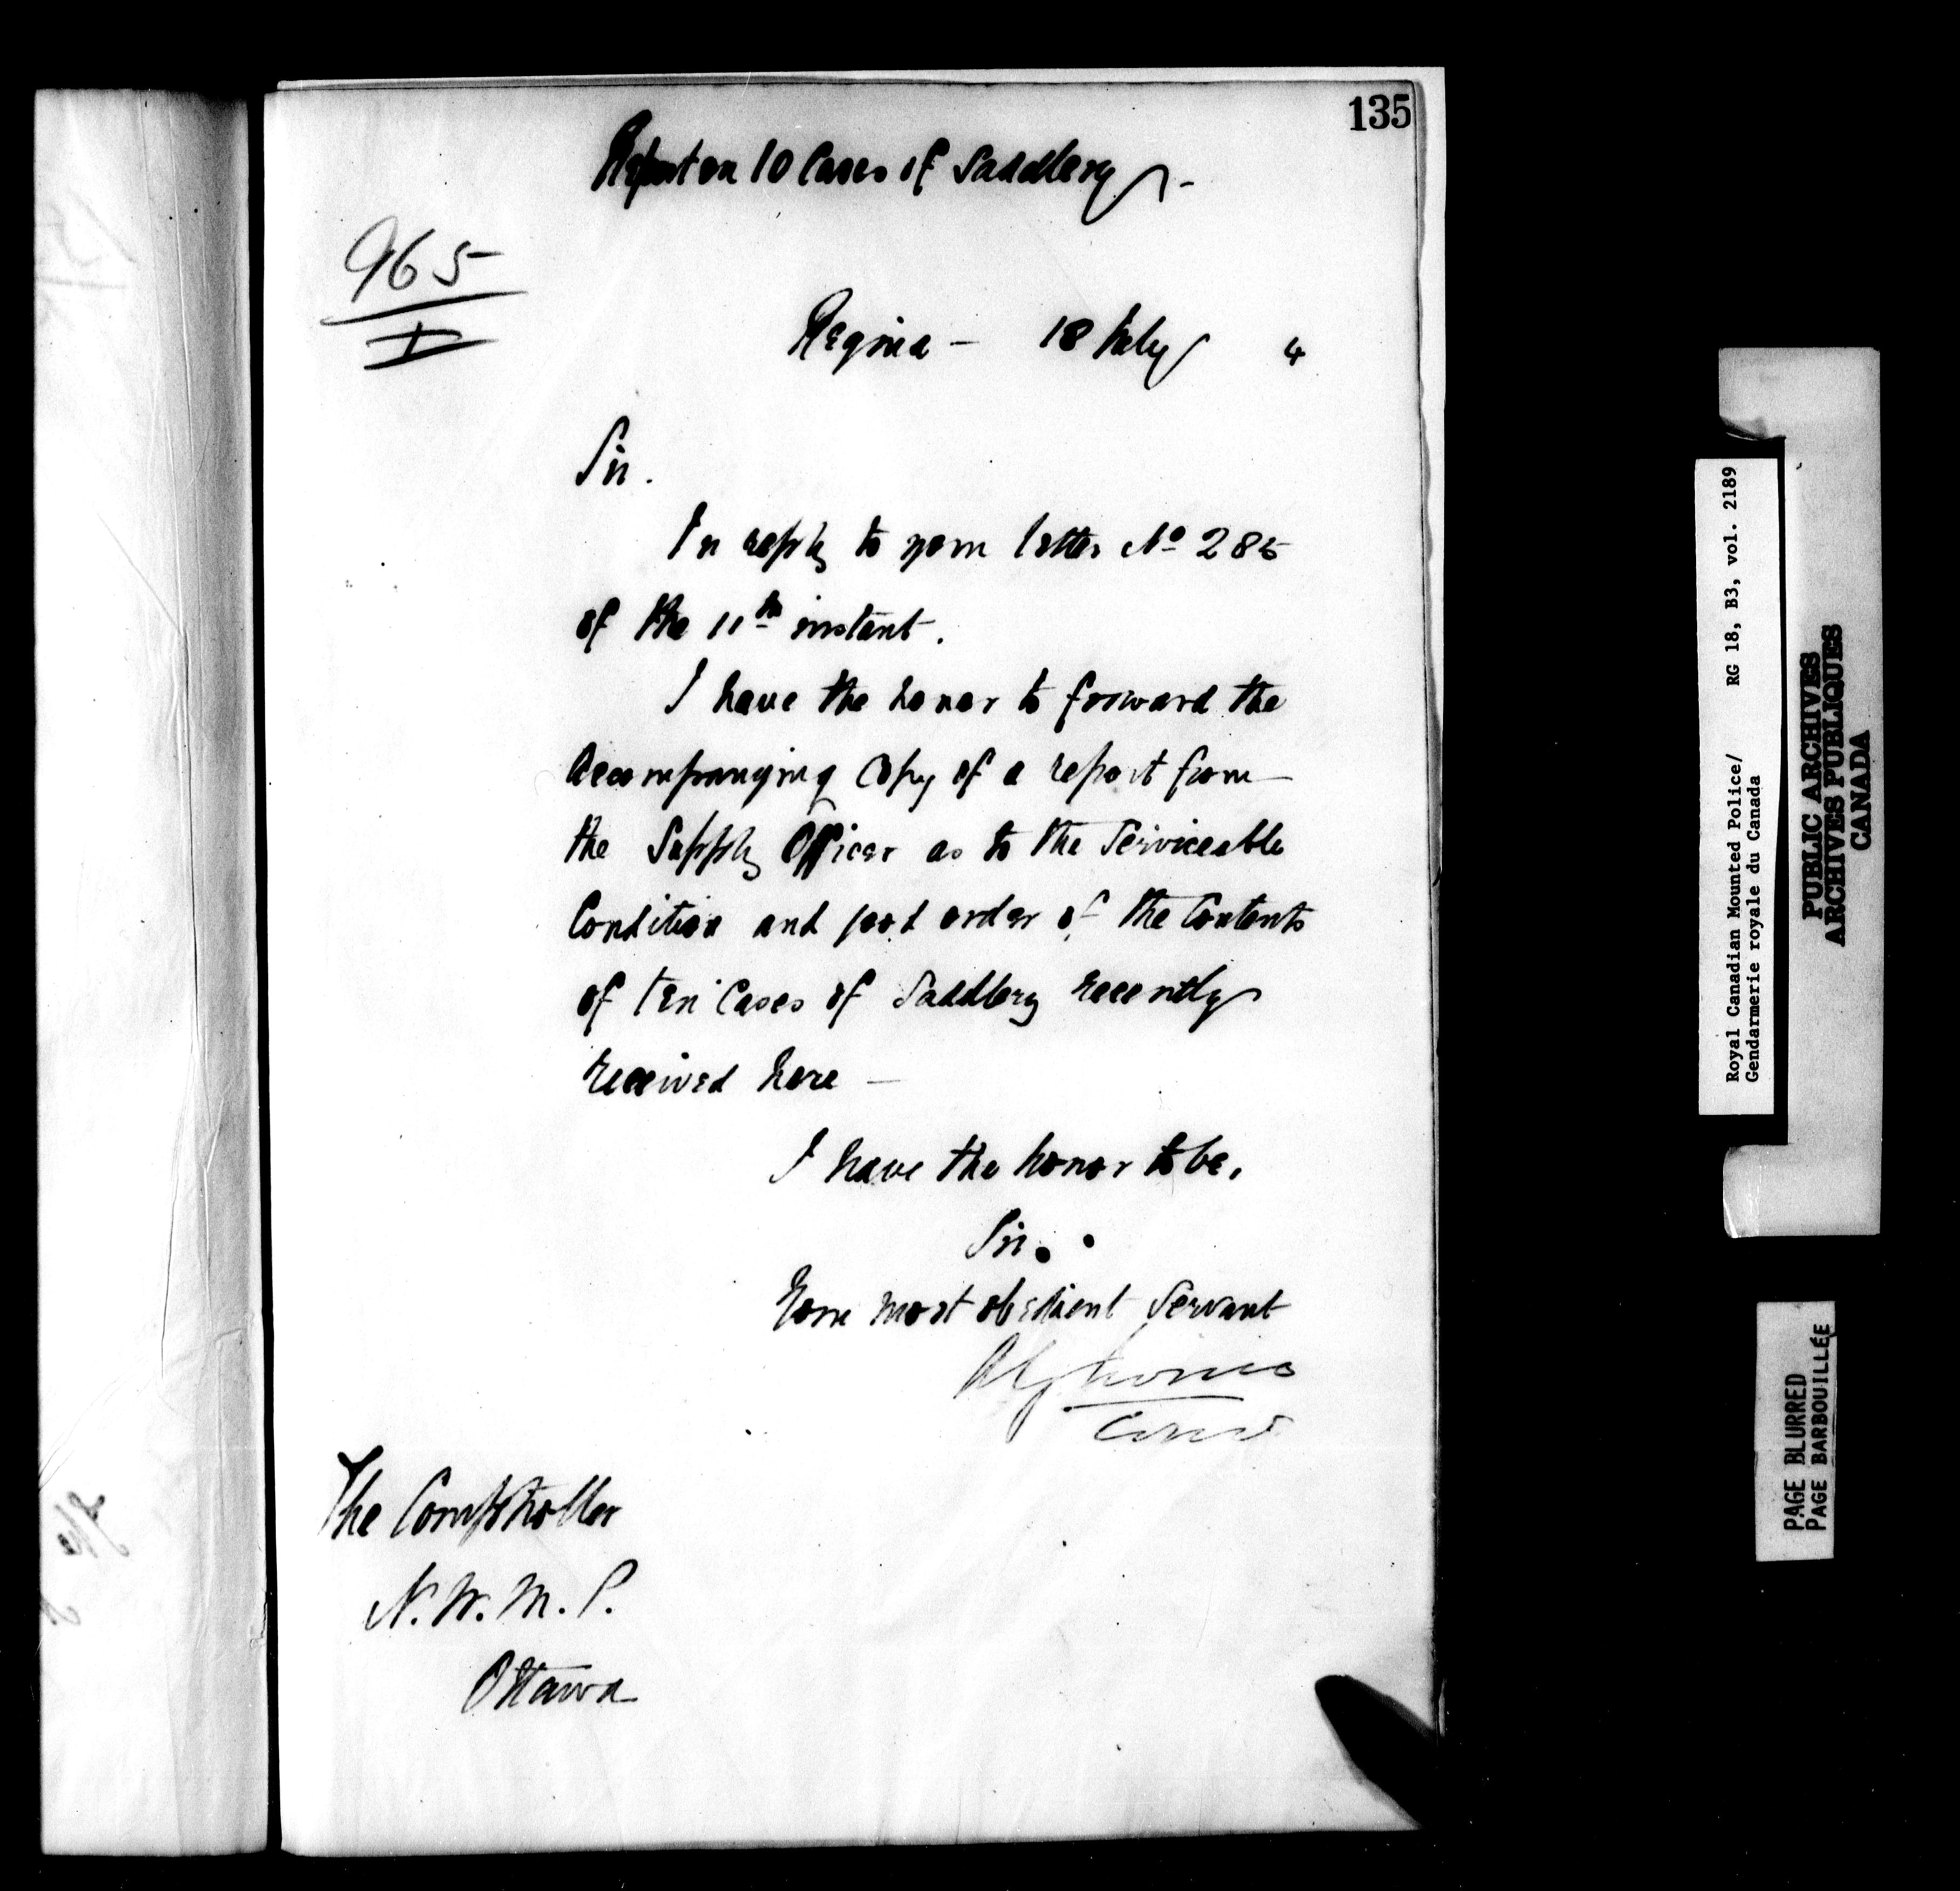 135
Report on 10 Cases of Saddlery -
965
I
Regina - 18 July 4
Sir.
In reply to your letter No 285
of the 11th instant.
I have the honor to forward the
Accompanying Copy of a report from
the Supply Officer as to the Serviceable
Condition and good order of the Contents
of ten Cases of Saddlery recently
received here —
I have the honor to be,
Sir.
Your most obedient Servant
The Comptroller
N. W. M. P.
Ottawa
Royal Canadian Mounted Police/ RG 18, B3, vol. 2189
Gendarmerie royale du Canada
PUBLIC ARCHIVES
ARCHIVES PUBLIQUES
CANADA
PAGE BLURRED
PAGE BARBOUILLÉE